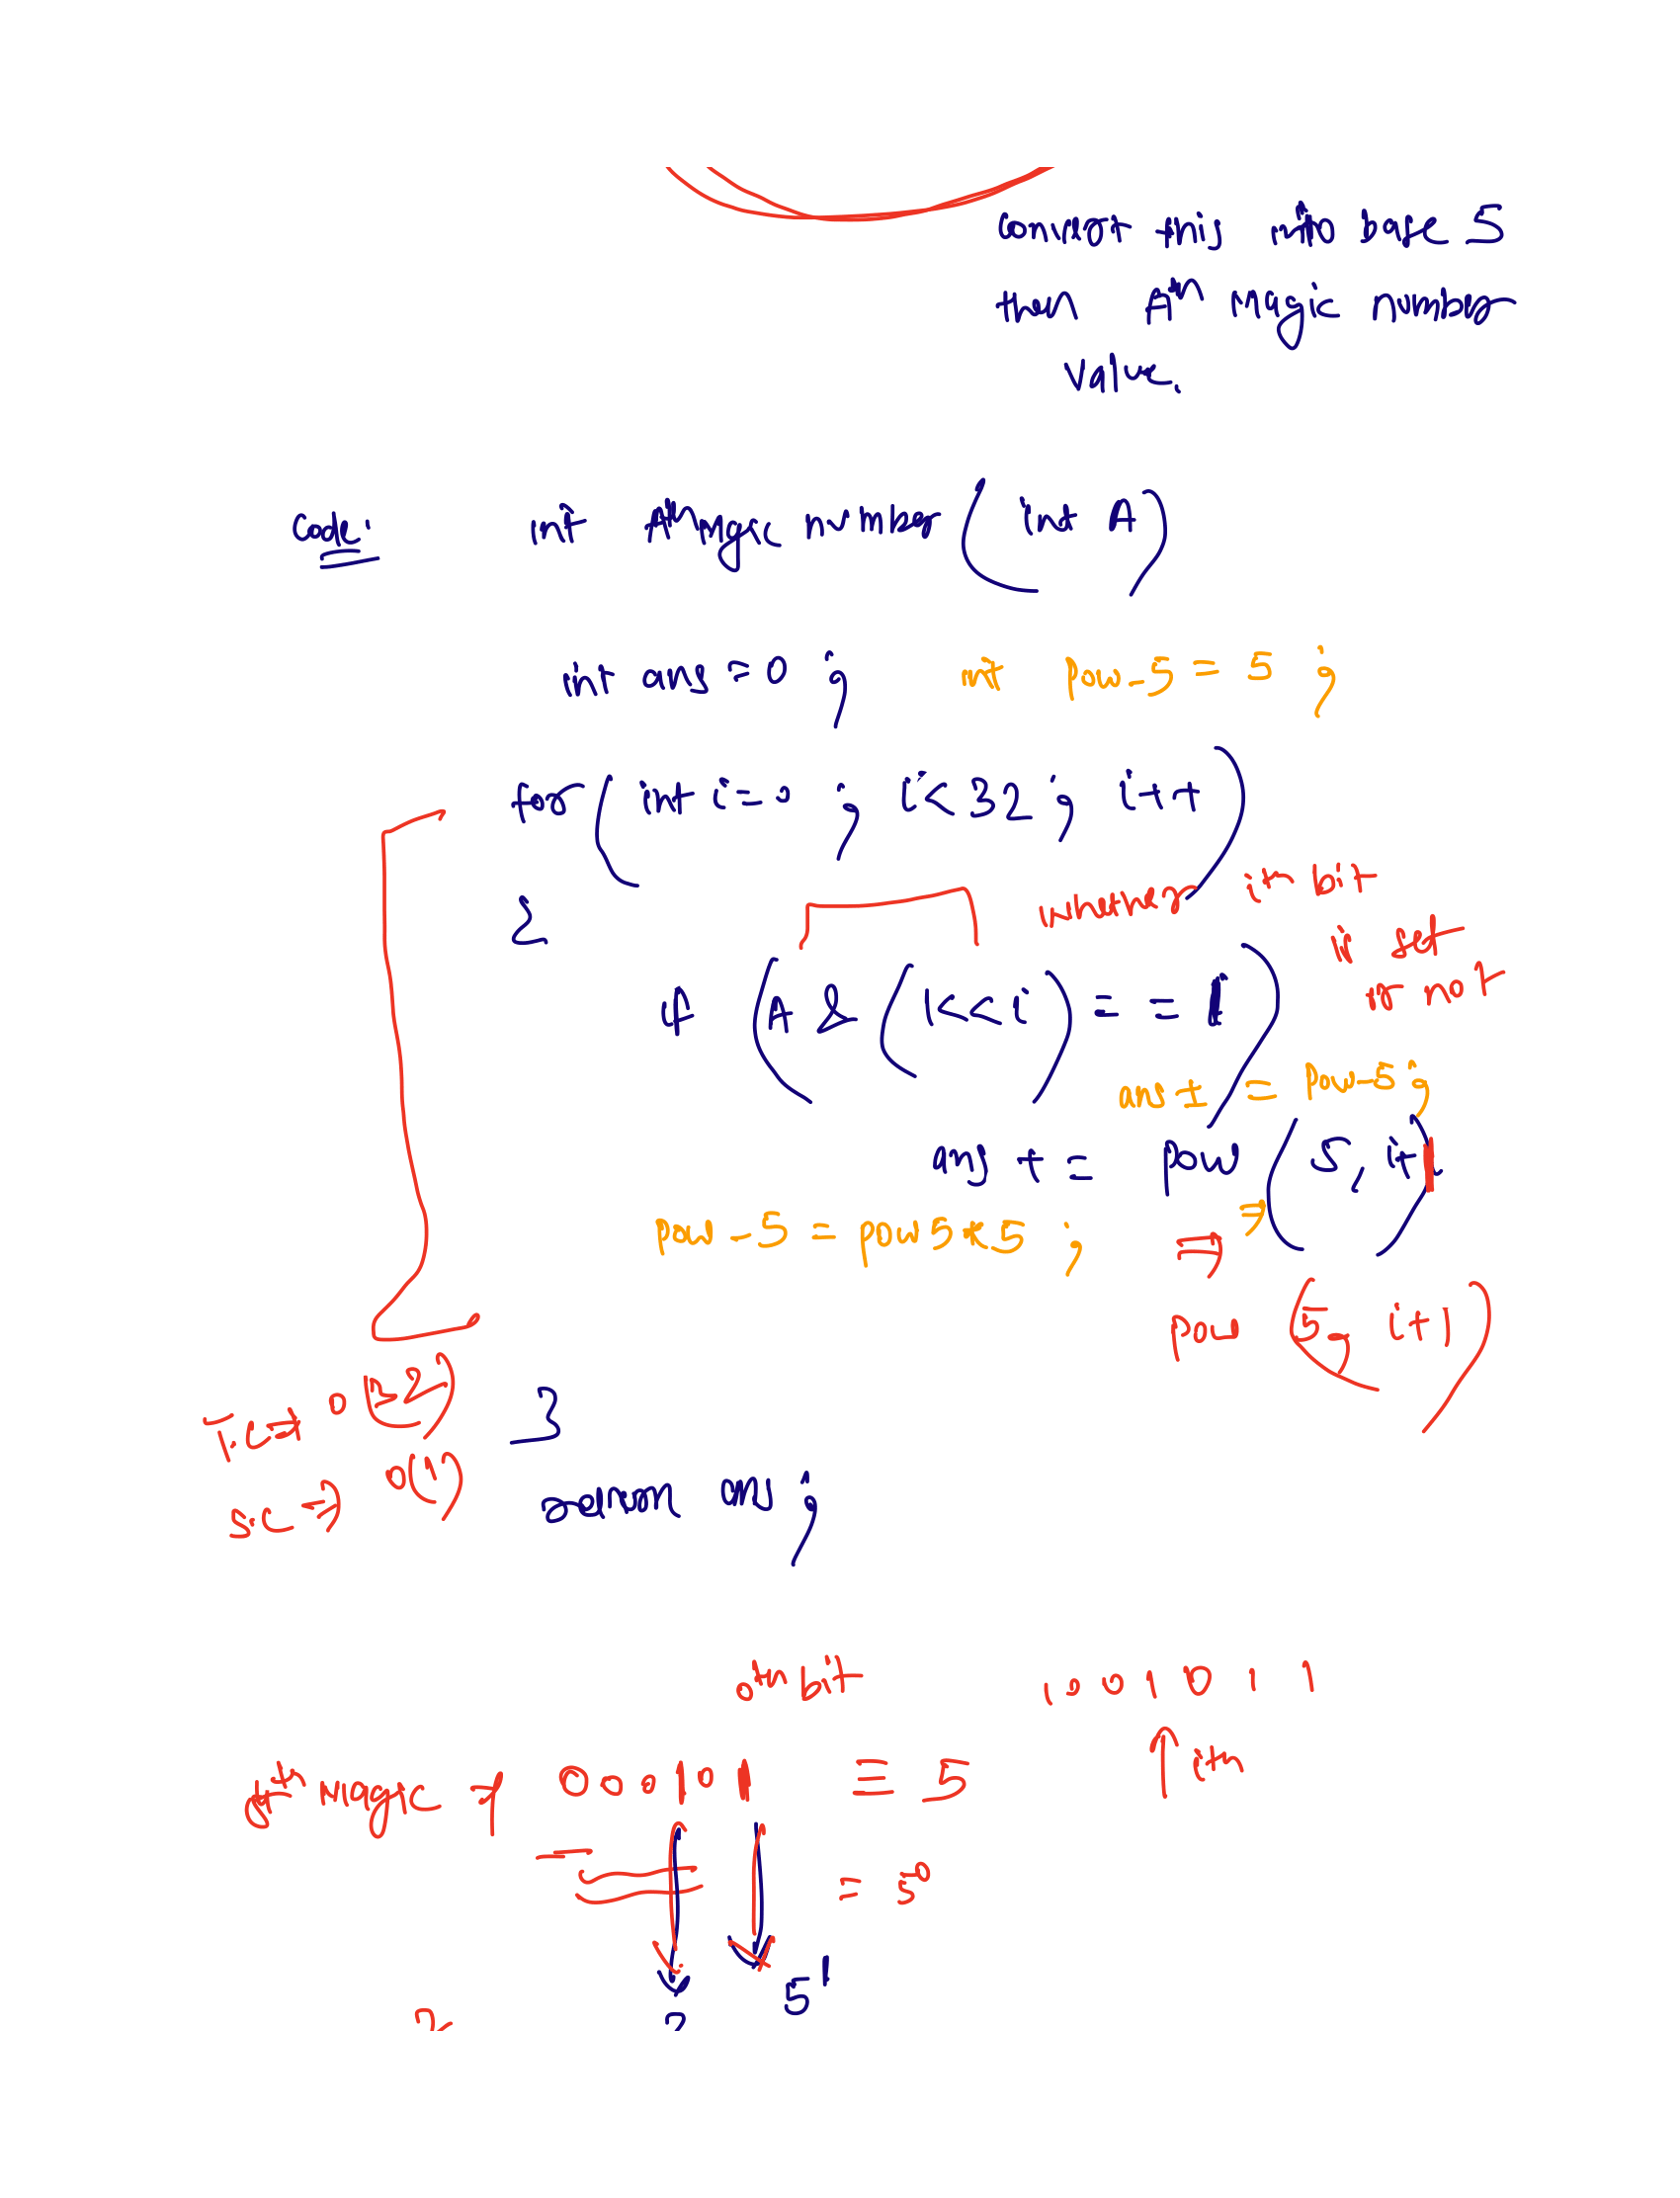 convert this into base 5
then Ath Magic number
value.
Code: int Ath Magic number (int A)
int ans = 0 ; int pow_5 = 5 ;
for (int i = 0 ; i < 32 ; i++)
{
whether ith bit
is set
or not
if (A & (1<<i) == 1)
ans + = pow_5 ;
ans + = pow (5, i+1)
pow_5 = pow5 * 5 ; ⇒
pow (5, i+1)
T.C → O(32)
}
S.C → O(1)
return ans ;
0th bit 1 0 0 1 0 1 1
ith
5th Magic 000101 ≡ 5
= 5^0
5^1
2 2